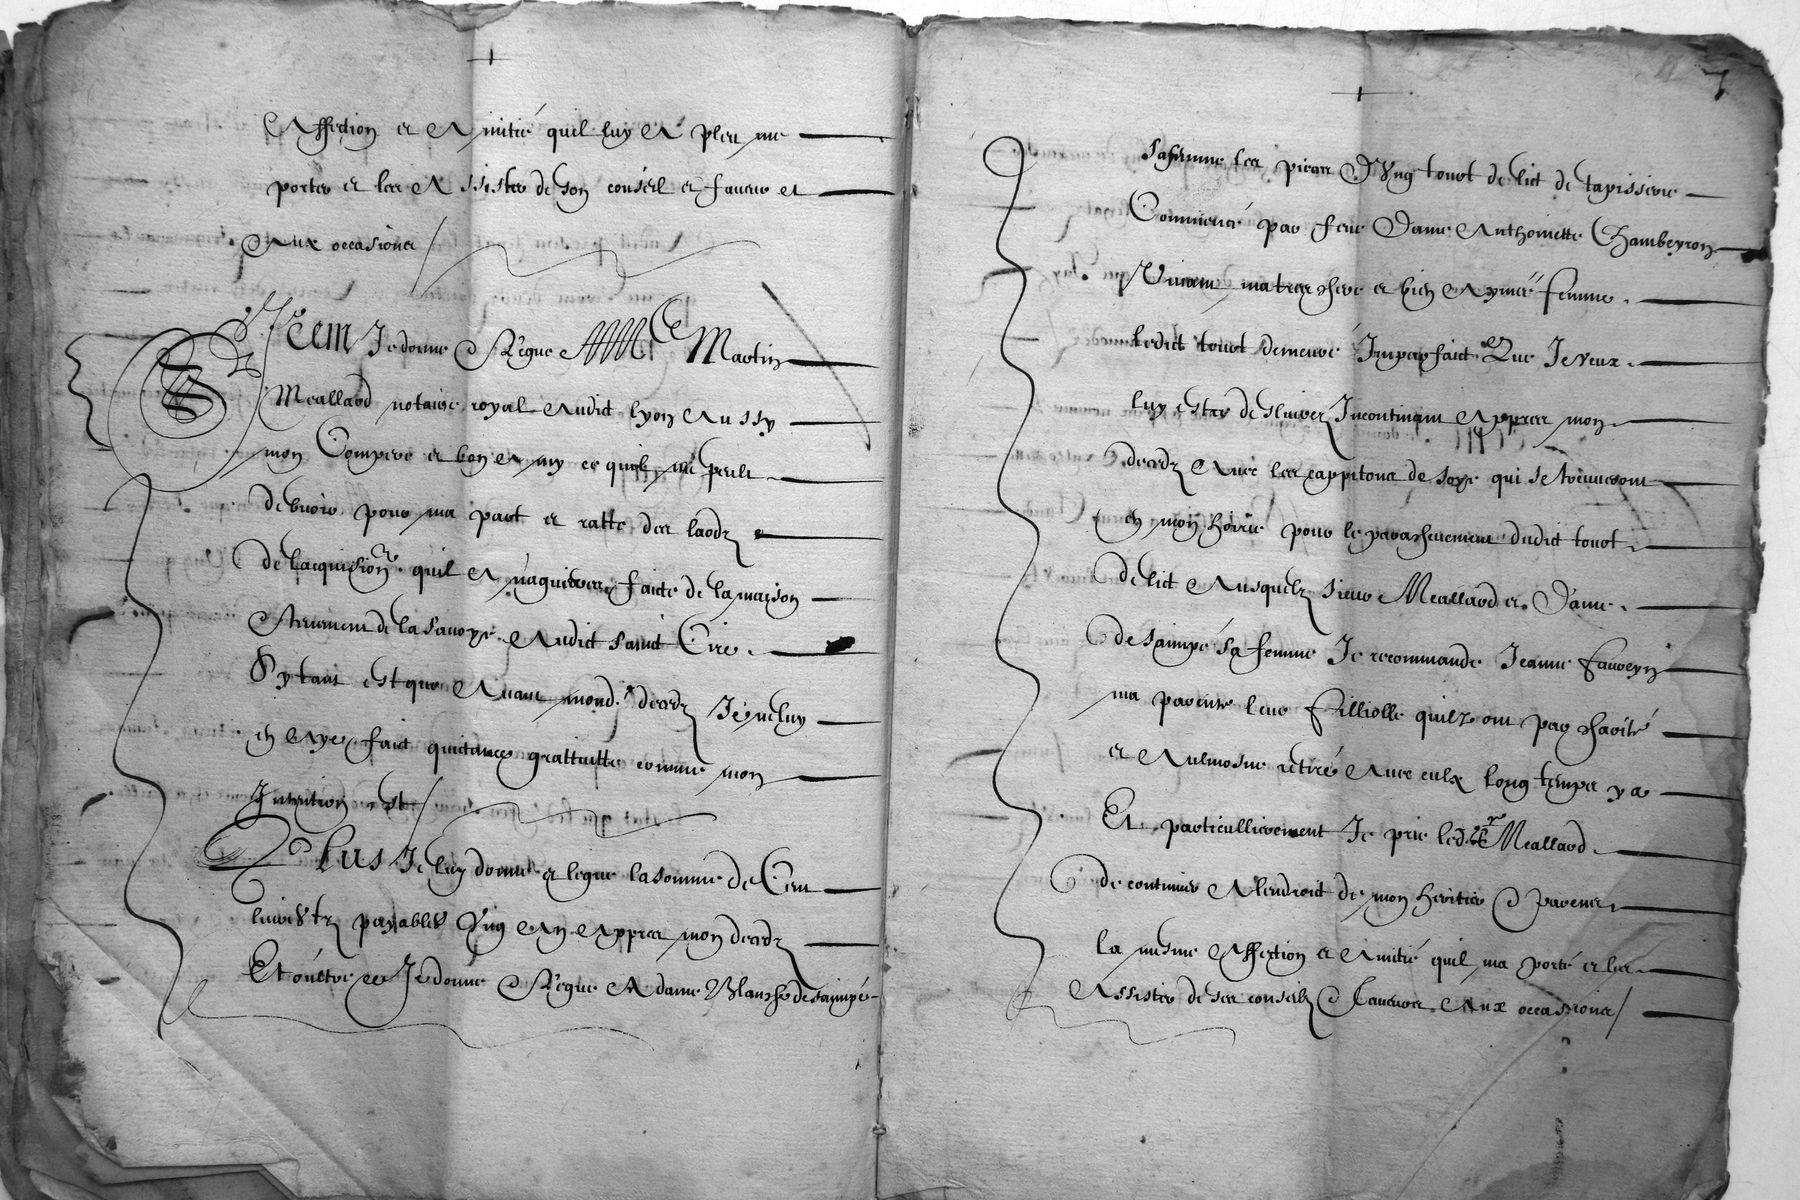 Affection et Amitié quil luy A pleu me
porter et les Assister de son conseil et faveur et
Aux occasions /
Item Je donne & legue A Me Martin
Meallard notaire royal Audict lyon Aussy
mon Compere et bon Amy ce quil me peult
debvoir pour ma part et ratte des laodz
de lacquision quil A naguieres faicte de la maison
de la savoye Audict sainct Cire
Sy tant est que Avant mond. decedz Je ne luy
en Aye faict quictance grattuitte comme mon
Intention est /
Plus Je luy donne et legue la somme de Cent
livres tz payables Ung An Appres mon decedz
Et oultre ce Je donne & legue A dame Blanche de saimpé
sa femme les pieces Dung tourt de lict de tapisserie
Commencé par feue Dame Anthoinette Chambeyron
Vivant ma tres chere et bien Aymée femme
ledict tourt demeuré Imperfaict Que Je veux
luy estre deslivrez Incontinant Appres mon
decedz Avec les cappitons de soye qui se treuveront
en mon hoirie pour le parachevement dudict tourt
de lict Ausquelz sieur Meallard et Dame
de saimpé sa femme Je recommande Jeanne faveyn
ma parente leur filliolle quilz ont par charité
et Aulmosne retiré Avec eulx long temps y a
Et particullierement Je prie led. Sr Meallard
de continuer A lendroict de mon heritier & parens
la mesme Affection et Amitié quil ma porté et les
Assister de ses conseilz & faveurs Aux occasions /
7